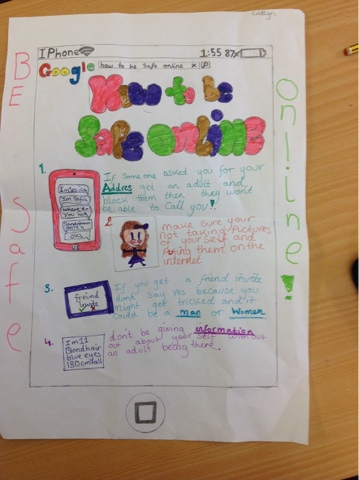 BE Safe
Online!
IPhone 1:55 87%
Google how to be safe online x
How to be
Safe ONLINE
1. If someone asked you for your
Addres got an adult and
block them then they wont
be able to call you!!
Im Sofia
where do
you live
2. make sure your
not taking pictures
of your self and
them on the
internet
3. If you get a friend invite
dont say yes because you
might get tricked and it
could be a man or women
freind
invite
4. dont be giving information
out about your self with out
an adult being there.
Im 11
blond hair
blue eyes
130cm tall